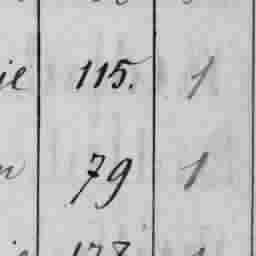 ie 115. 1
n 79 1